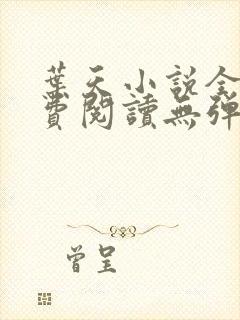 葉天小說全
費閱讀無彈
曾呈